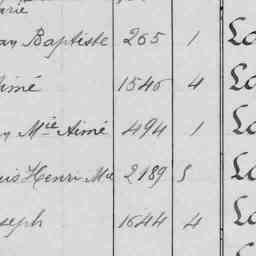 arie
an Baptiste 265 1 Lo
Aimé 1546 4 Lo
n Mie Aimé 494 1 Lo
uis Henri Mie 2189 5 Lo
seph 1644 4 Lo